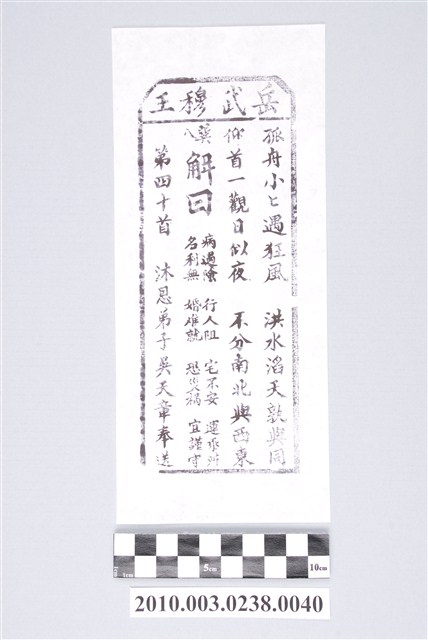 岳武穆王
孤舟小ヒ遇狂風 洪水滔天敦與同
仰首一觀日似夜 不分南北與西東
癸八
解曰
病遇險 行人阻 宅不安 運承
名利無 婚难就 恐災禍 宜謹守
第四十首 沐恩弟子吳天章奉送
1cm 5cm 10cm
2010.003.0238.0040